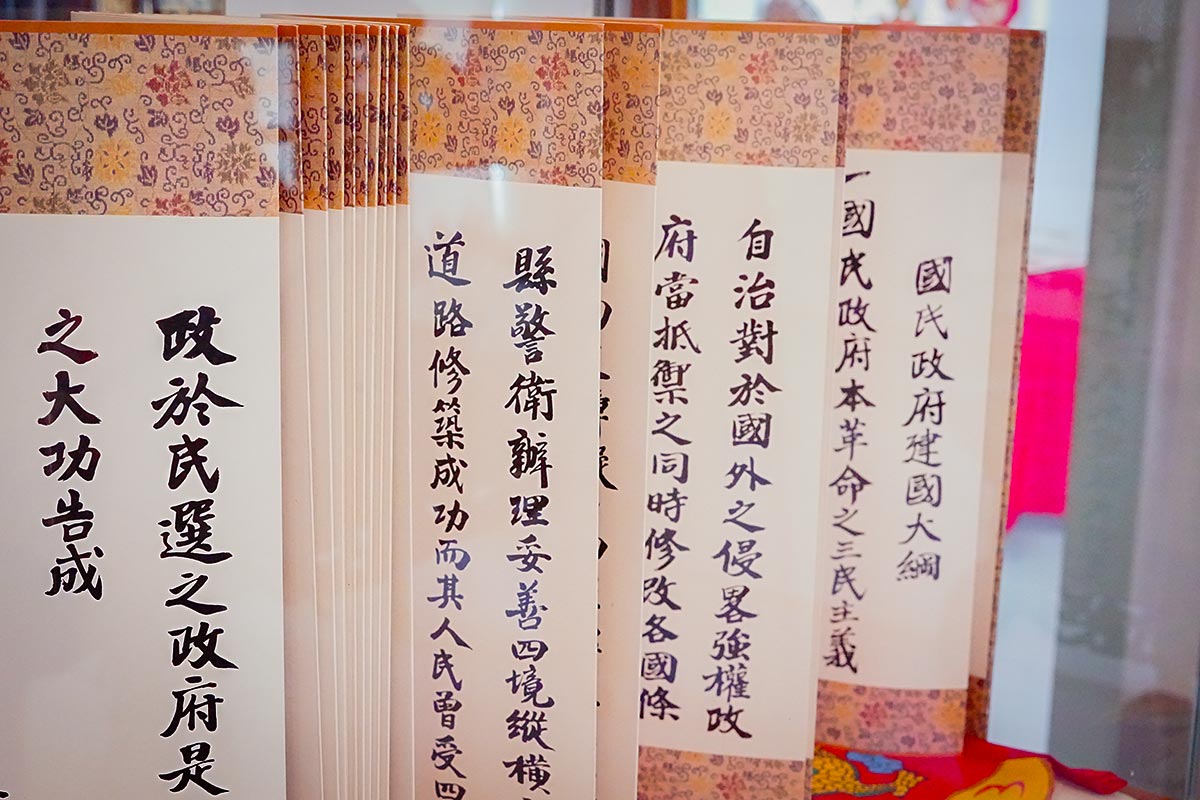 國民政府建國大綱
一國民政府本革命之三民主義
自治對於國外之侵畧強權政
府當抵禦之同時修改各國條
縣警衛辦理妥善四境縱橫
道路修築成功而其人民曾受四
政於民選之政府是
之大功告成